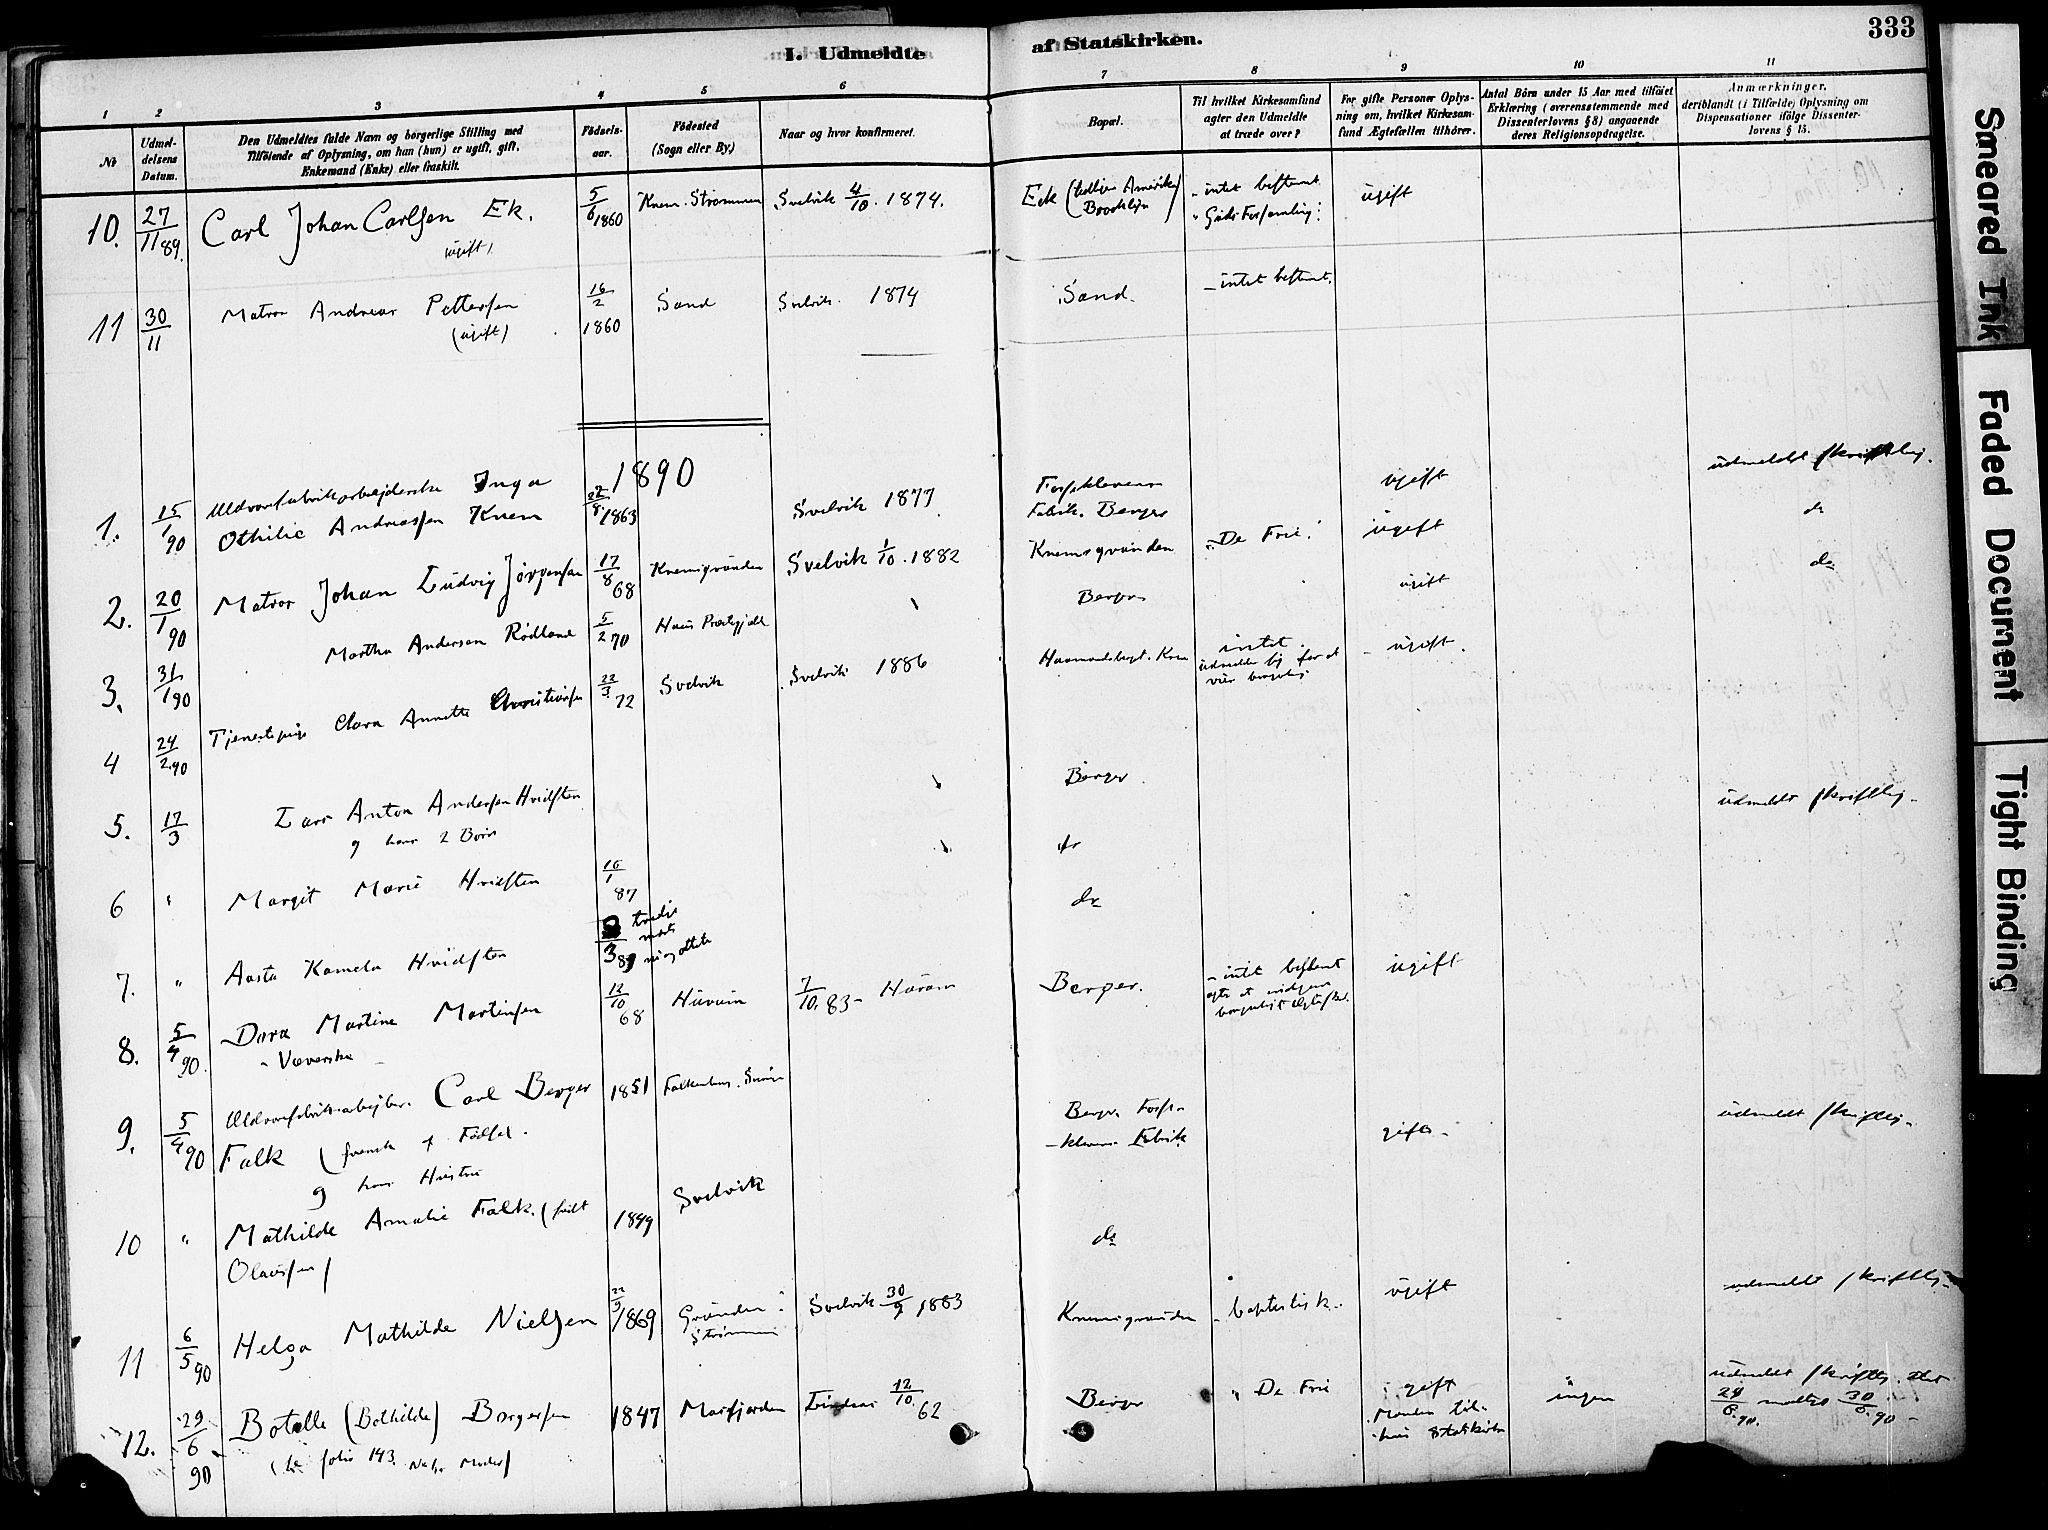 333
I. Udmeldte af Statskirken.
1 2 3 4 5 6 7 8 9 10 11
№
Udmeldelsens Datum.
Den Udmeldtes fulde Navn og borgerlige Stilling med
Tilföiende af Oplysning, om han (hun) er ugift, gift,
Enkemand (Enke) eller fraskilt.
Födselsaar.
Födested
(Sogn eller By.)
Naar og hvor konfirmeret.
Bopæl.
Til hvilket Kirkesamfund
agter den Udmeldte
at træde over?
For gifte Personer Oplys-
ning om, hvilket Kirkesam-
fund Ægtefællen tilhörer.
Antal Börn under 15 Aar med tilföiet
Erklæring (overensstemmende med
Dissenterlovens § 8) angaaende
deres Religionsopdragelse.
Anmærkninger,
deriblandt (i Tilfælde) Oplysning om
Dispensationer ifölge Dissenter-
lovens § 15.
10. 27/11 89. Carl Johan Carlsen Ek. 5/6 1860 Knem. Strømmen Svelvik 4/10. 1874. Eek Amerika - intet bestemt ugift
(ugift) Brooklyn
11 30/11 Matros Andreas Pettersen 16/2 1860 Sand Svelvik. 1874 Sand. - intet bestemt.
(ugift)
1890
1. 15/1 90 Uldvarefabrikarbejderske Inga 22/8 1863 Svelvik 1877 Fossekleven ugift udmeldt skriftlig.
Othilie Andreassen Knem Fabrik. Berger do
2. 20/1 90 Matros Johan Ludvig Jørgensen 17/8 68 Knemsgrunden Svelvik 1/10. 1882 Knemsgrunden "De Frie" ugift
3. 31/1 90 Martha Andersen Rødland 5/2 70 Haus Berger ugift do
4 24/2 90 Tjenestepige Clara Annette Christiansen 22/3 72 Svelvik Svelvik 1886 intet - ugift.
5. 17/3 Lars Anton Andersen Hvidsten Berger udmeldt skriftlig.
og hans 2 Børn
6 " Margit Marie Hvidsten 16/1 87 do
7. " Aasta Kamela Hvidsten 3/3 89 tredje marts do
8. 5/4 90. Dora Martine Martinsen 12/10 68 Hurum 7/10. 83 - Hurum Berger. - intet bestemt ugift
- Væverske -
9. 5/4 90 Uldvarefabrikarbejder. Carl Berger 1851 Falkenberg. Berger. Foss- udmeldt skriftlig.
Falk (svensk af Fødsel. -kleven Fabrik gift.
og hans Hustru
10 " Mathilde Amalie Falk. (født 1849 Svelvik do
Olausen)
11 6/5 90 Helga Mathilde Nielsen 22/9 1869 Grunden i Svelvik 30/9 1883 Knemsgrunden - baptistisk. ugift udmeldt skriftlig.
Strømmen
12. 29/6 90 Botelle (Bothilde) Borgersen 1847 Masfjorden Lindaas 12/10. 62 Berger " De Frie gift ingen udmeldt skriftlig.
(se folio 143. Manden til- 29/6.90. 30/6.90
Statskirken
Smeared Ink
Faded Document
Tight Binding